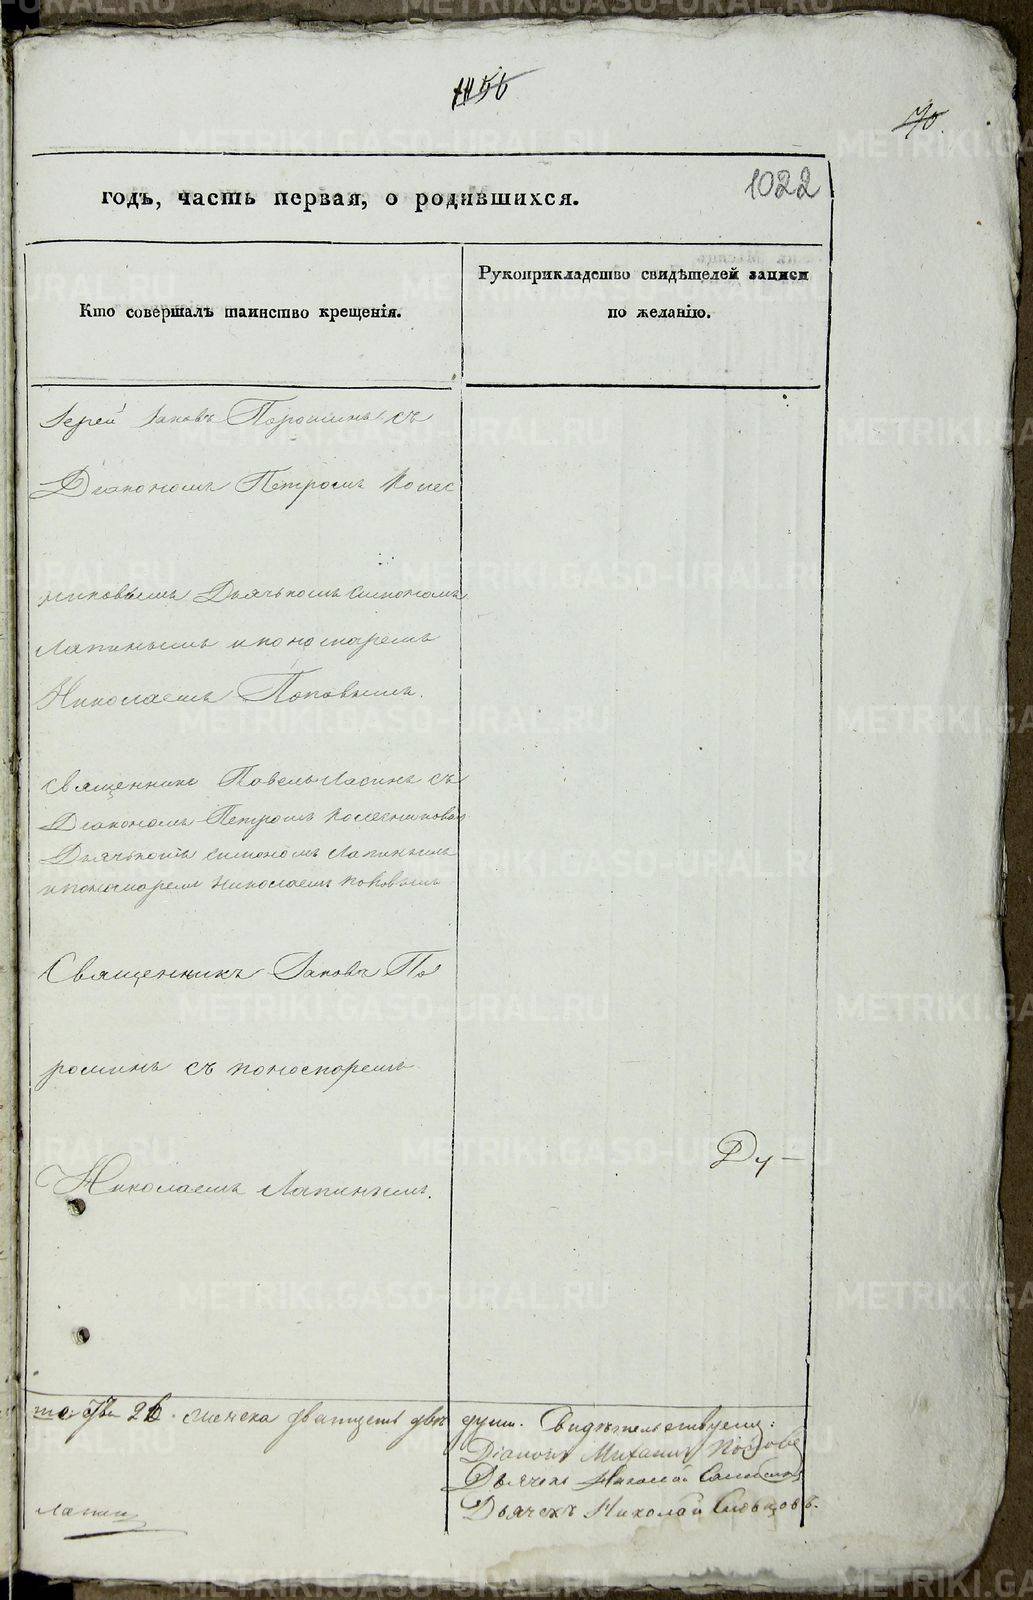 1156
70.
1022
годъ, часть первая, о родившихся.
Кто совершалъ таинство крещенія.
Рукоприкладство свидѣтелей записи
по желанію.
Іерей Іаковъ Порошинъ съ
Діакономъ Петромъ Колес
никовымъ Дьячькомъ Симономъ
Лапинымъ и пономаремъ
Николаемъ Поповымъ.
Священникъ Павелъ Ласинъ съ
Діакономъ Петромъ Колесниковым
Дьячькомъ Симономъ Лапинымъ
и пономаремъ Николаемъ Поповымъ
Священникъ Іаковъ По
рошинъ съ пономоремъ
Николаемъ Лапинымъ.
Ду—
26. женска дватцеть двѣ душъ. Свидѣтельствуемъ:
Діаконъ Михаилъ Поповъ
Дьячекъ Николай
Лапин
Дьячекъ Николай Сивцовъ.
METRIKI.GASO-URAL.RU